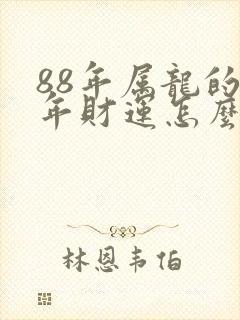 88年属龍的
年财運怎麽
林恩韦伯